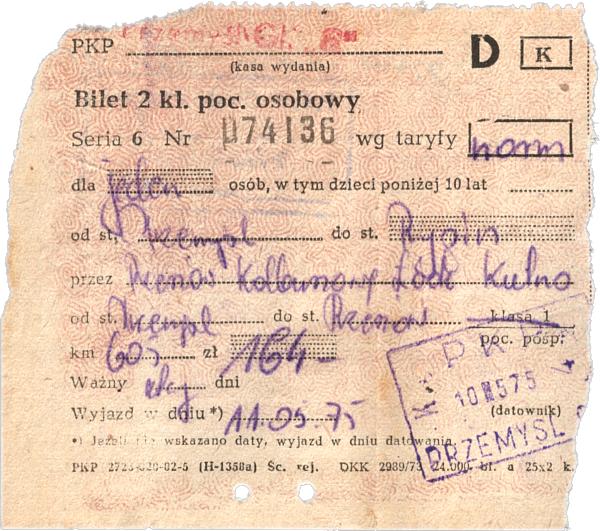 PKP
(kasa wydania)
D K
Bilet 2 kl. poc. osobowy
Seria 6 Nr 074136 wg taryfy norm
dla jeden osób, w tym dzieci poniżej 10 lat
od st. Przemyśl do st. Rypin
przez Rzeszów Kolbuszowa Łódź Kutno
od st. Przemyśl do st. Rzeszów klasa 1
poc. pośp.
km 605 zł 164-
Ważny dni
Wyjazd w dniu *) 11.05.75 (datownik)
*) Jeżeli nie wskazano daty, wyjazd w dniu datowania.
PKP 2723-020-02-5 (H-1358a) Śc. rej. DKK 2989/73 24.000 bl. a 25x2 k.
PKP
575
PRZEMYŚL